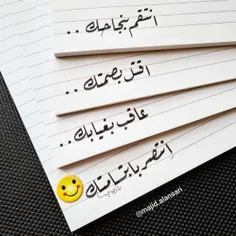 انتقم بنجاحك ..
اقتل بصمتك ..
عاقب بغيابك ..
إنتصر بابتسامتك
@majid.alansari